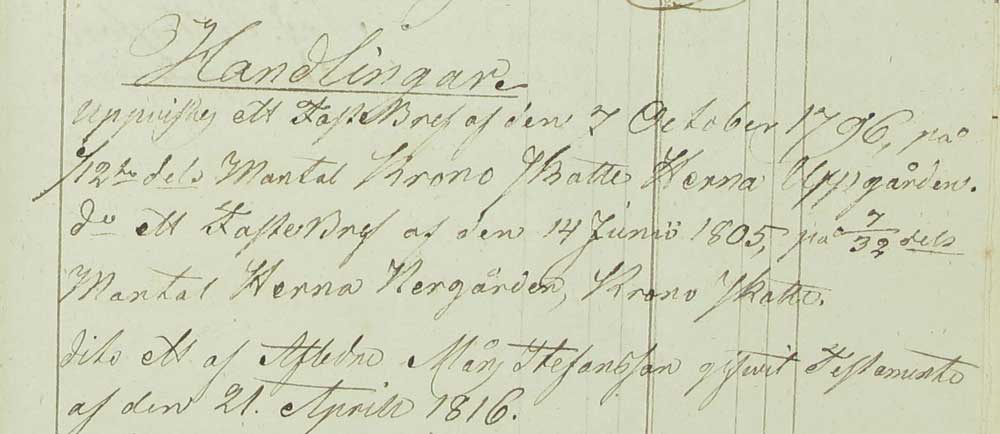 Handlingar
Uppvistes ett FasteBref af den 7 October 1796, på
1/12te dels Mantal Krono Skatte Herna Uppgården.
do ett FasteBref af den 14 Junii 1805, på 7/32 dels
Mantal Herna Nergården, Krono Skatte.
dito ett af Afledne Måns Stefansson gifwit Testamente
af den 21. Aprill 1816.